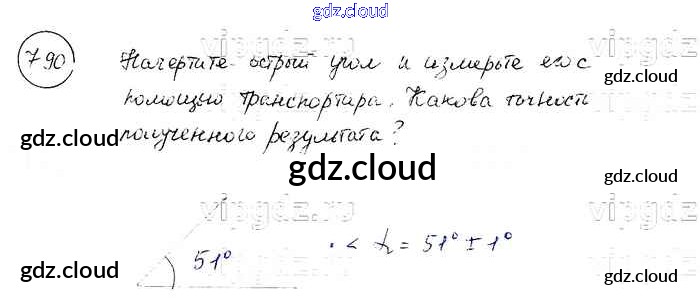 gdz.cloud
790 Начертите острый угол и измерьте его с
помощью транспортира. Какова точность
полученного результата?
gdz.cloud
gdz.cloud
gdz.cloud
gdz.cloud
vipgdz.ru
51° = 51° ± 1°
gdz.cloud
gdz.cloud